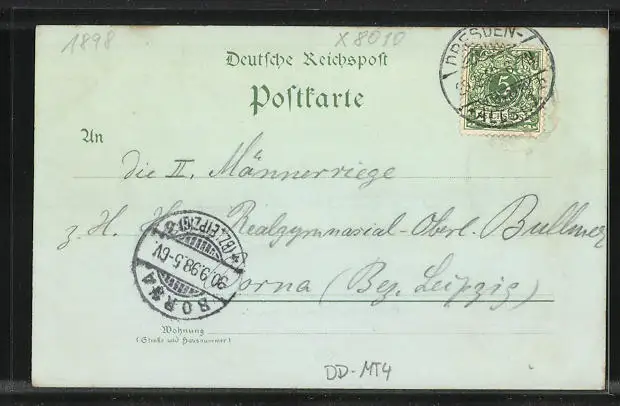 1898
X8010
Deutsche Reichspost
Postkarte
DRESDEN-
ALTST.
5
An
die II. Männerriege
z. H. H. Realgymnasial-Oberl. Bullmer
Borna (Bez. Leipzig)
(BZ. LEIPZIG)
30.9.98.5-6V.
BORNA
Wohnung
(Straße und Hausnummer)
DD-MT4